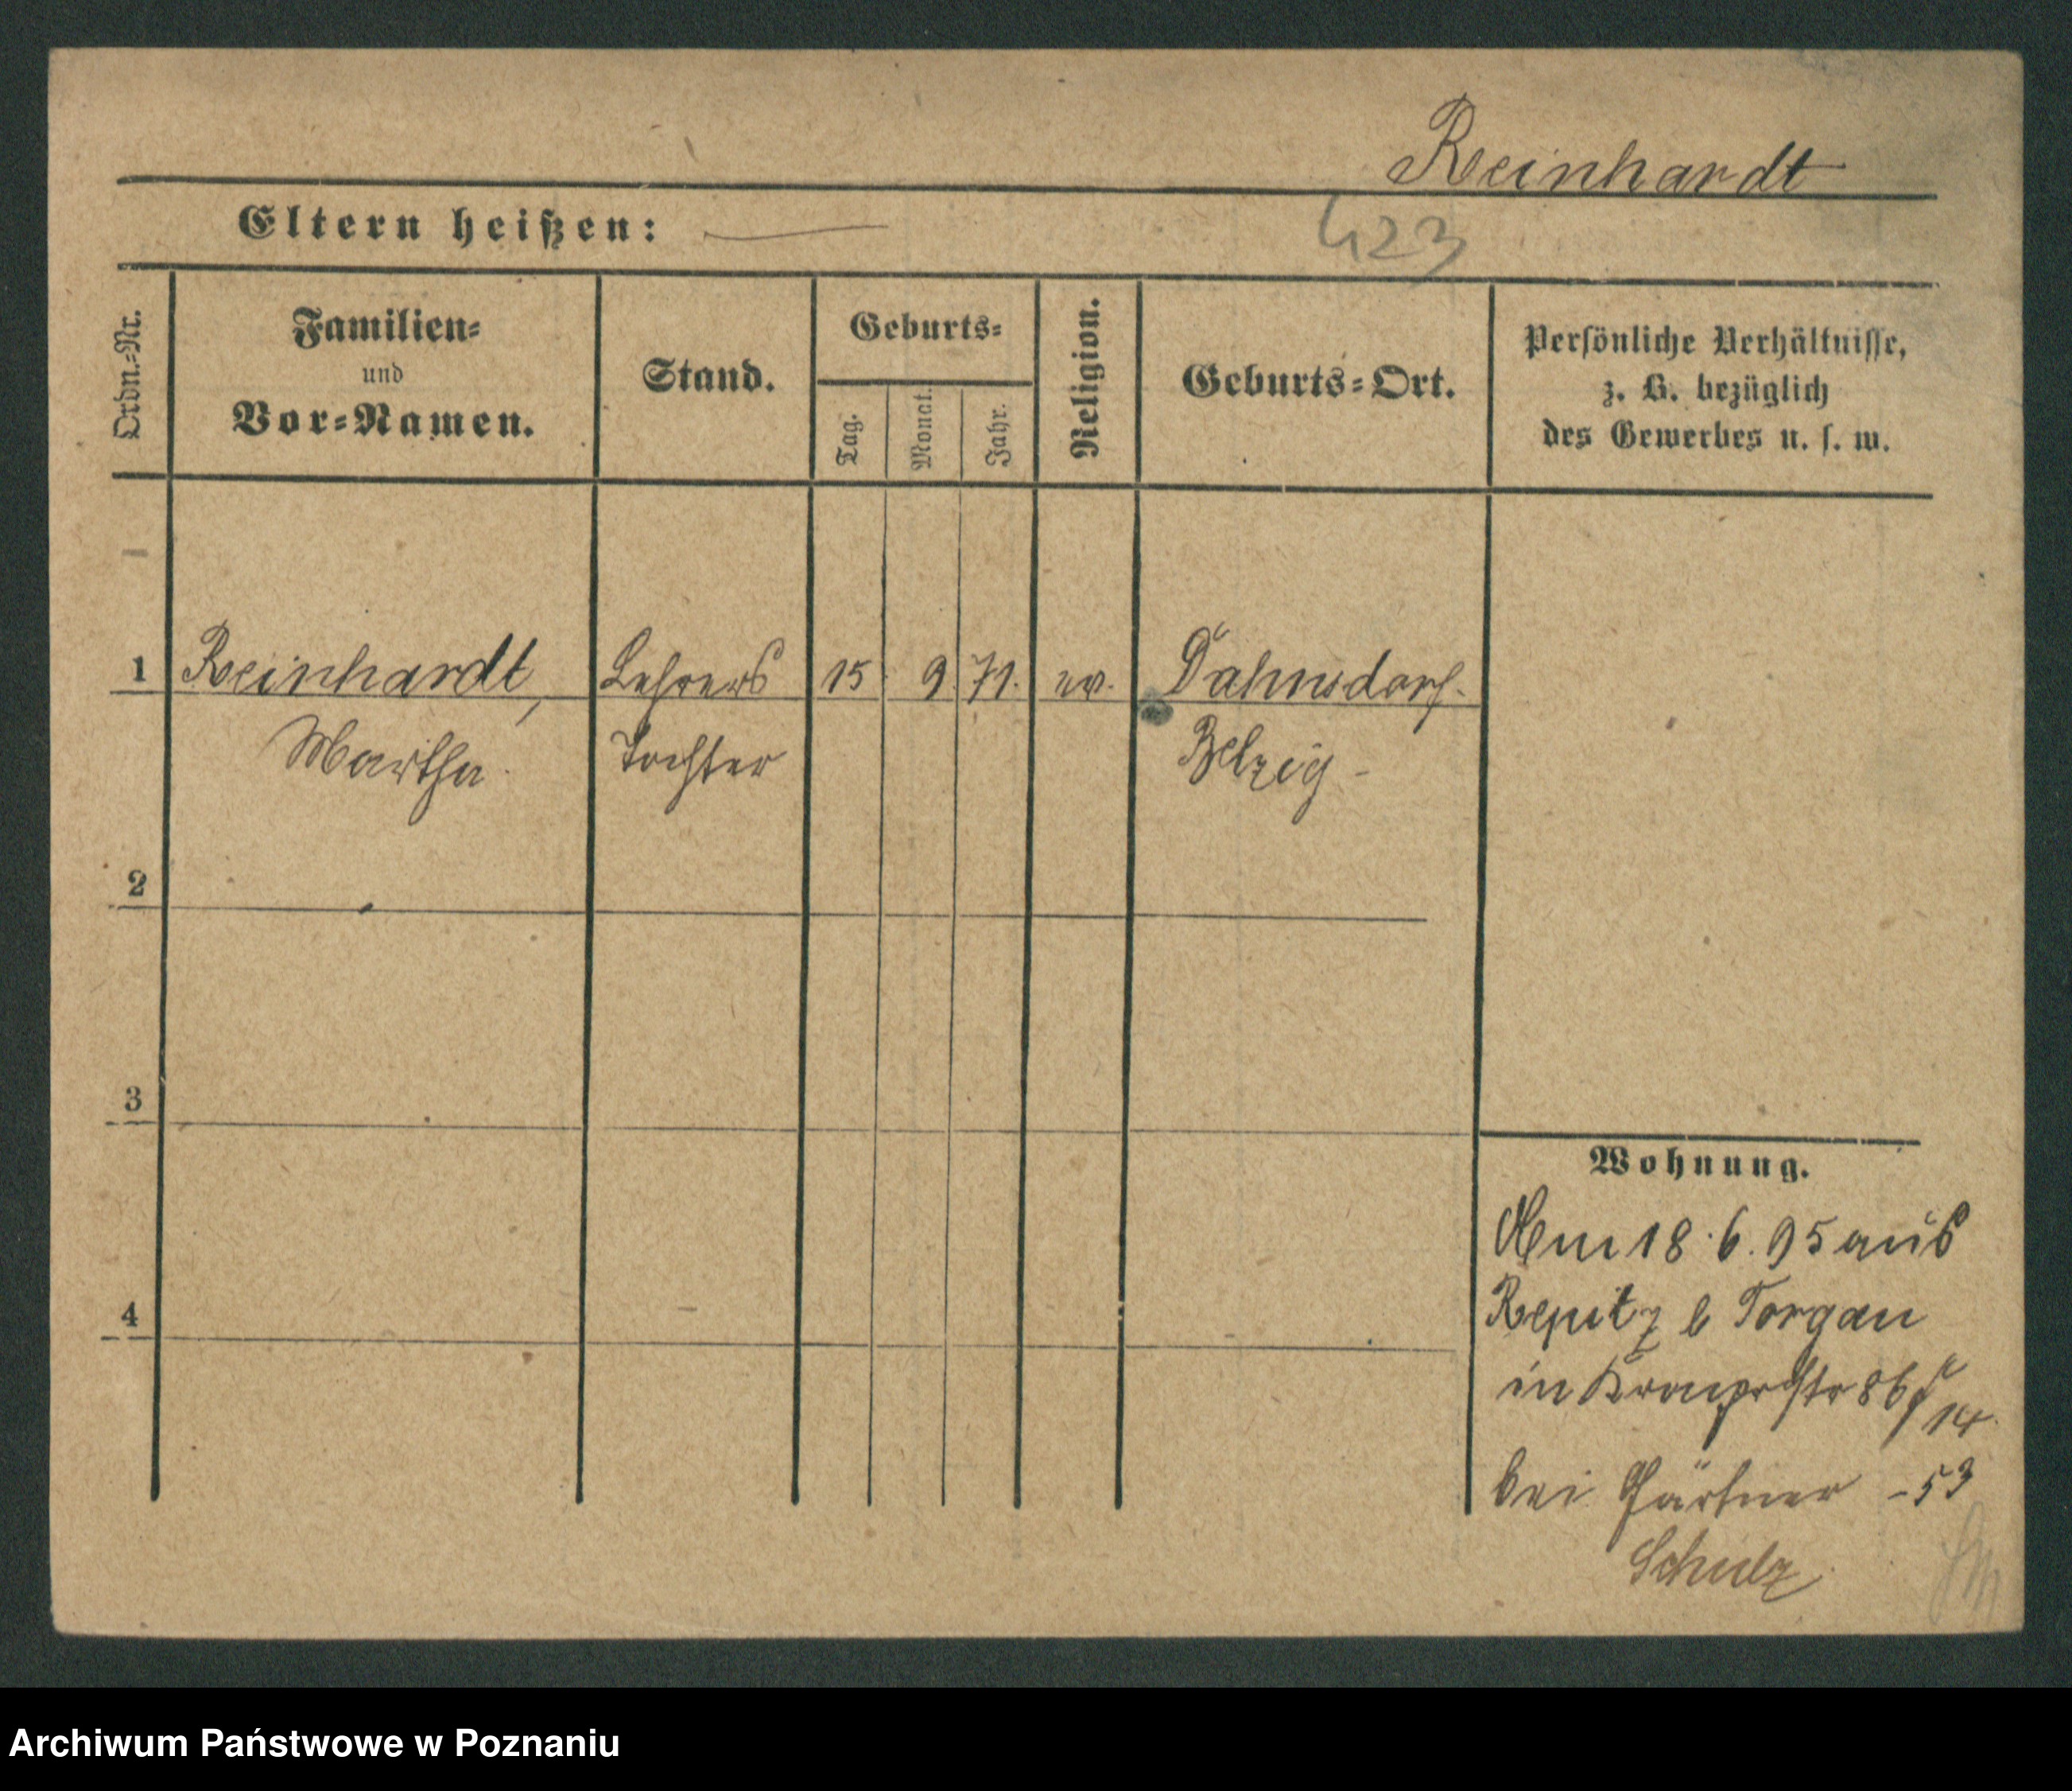 Reinhardt
Eltern heißen: —
423
Ordn.=Nr.
Familien=
und
Vor=Namen.
Stand.
Geburts=
Tag.
Monat.
Jahr.
Religion.
Geburts=Ort.
Persönliche Verhältnisse,
z. B. bezüglich
des Gewerbes u. s. w.
1 Reinhardt, Lehrers 15 9. 71. ev. Dahnsdorf.
Martha. Tochter Belzig -
2
3
4
Wohnung.
Am 18.6.95 aus
Repitz b Torgau
in 86
14
bei Gärtner - 53
Schulz.
Archiwum Państwowe w Poznaniu